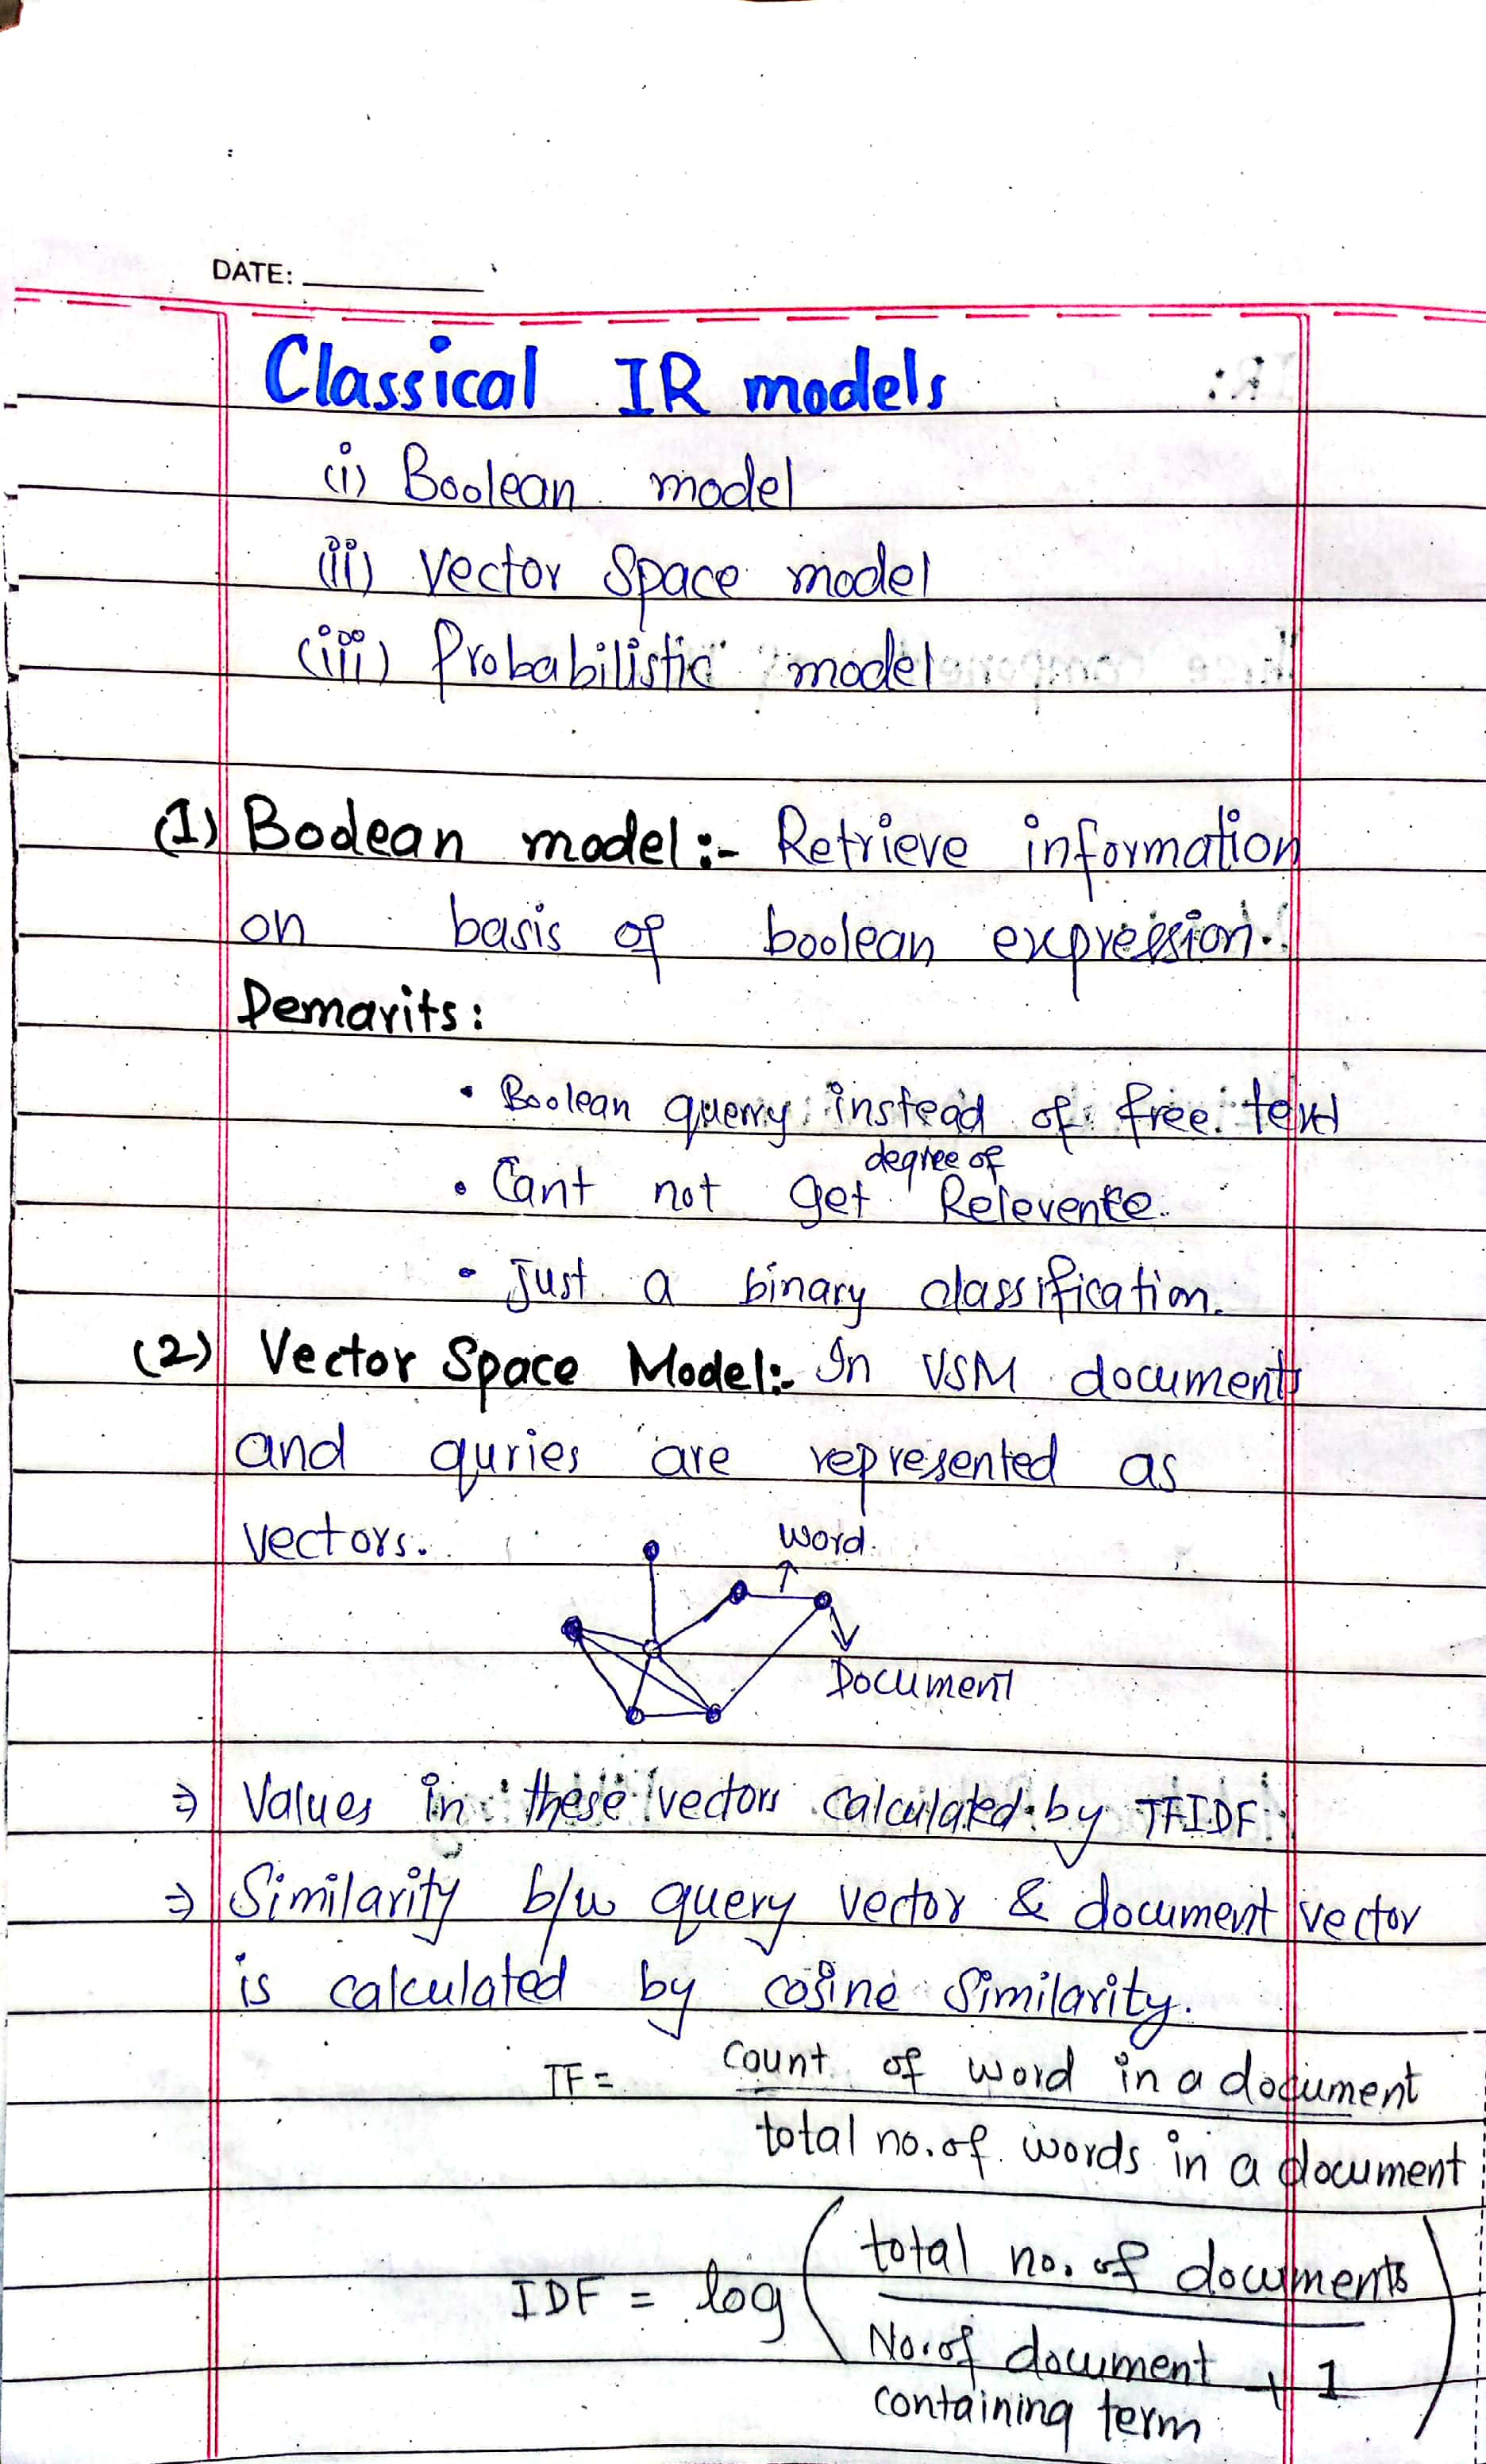 DATE:
Classical IR models
(i) Boolean model
(ii) Vector Space model
(iii) Probabilistic model
(1) Boolean model:- Retrieve information
on basis of boolean expression.
Demarits:
• Boolean querry instead of free text
• Cant not get degree of Relevente.
• Just a binary classification.
(2) Vector Space Model:- In VSM documents
and quries are represented as
vectors.
word
Document
⇒ Values in these vectors calculated by TFIDF
⇒ Similarity b/w query vector & document vector
is calculated by cosine Similarity.
TF = count of word in a document
total no. of words in a document
IDF = log ( total no. of documents
No. of document + 1 )
containing term